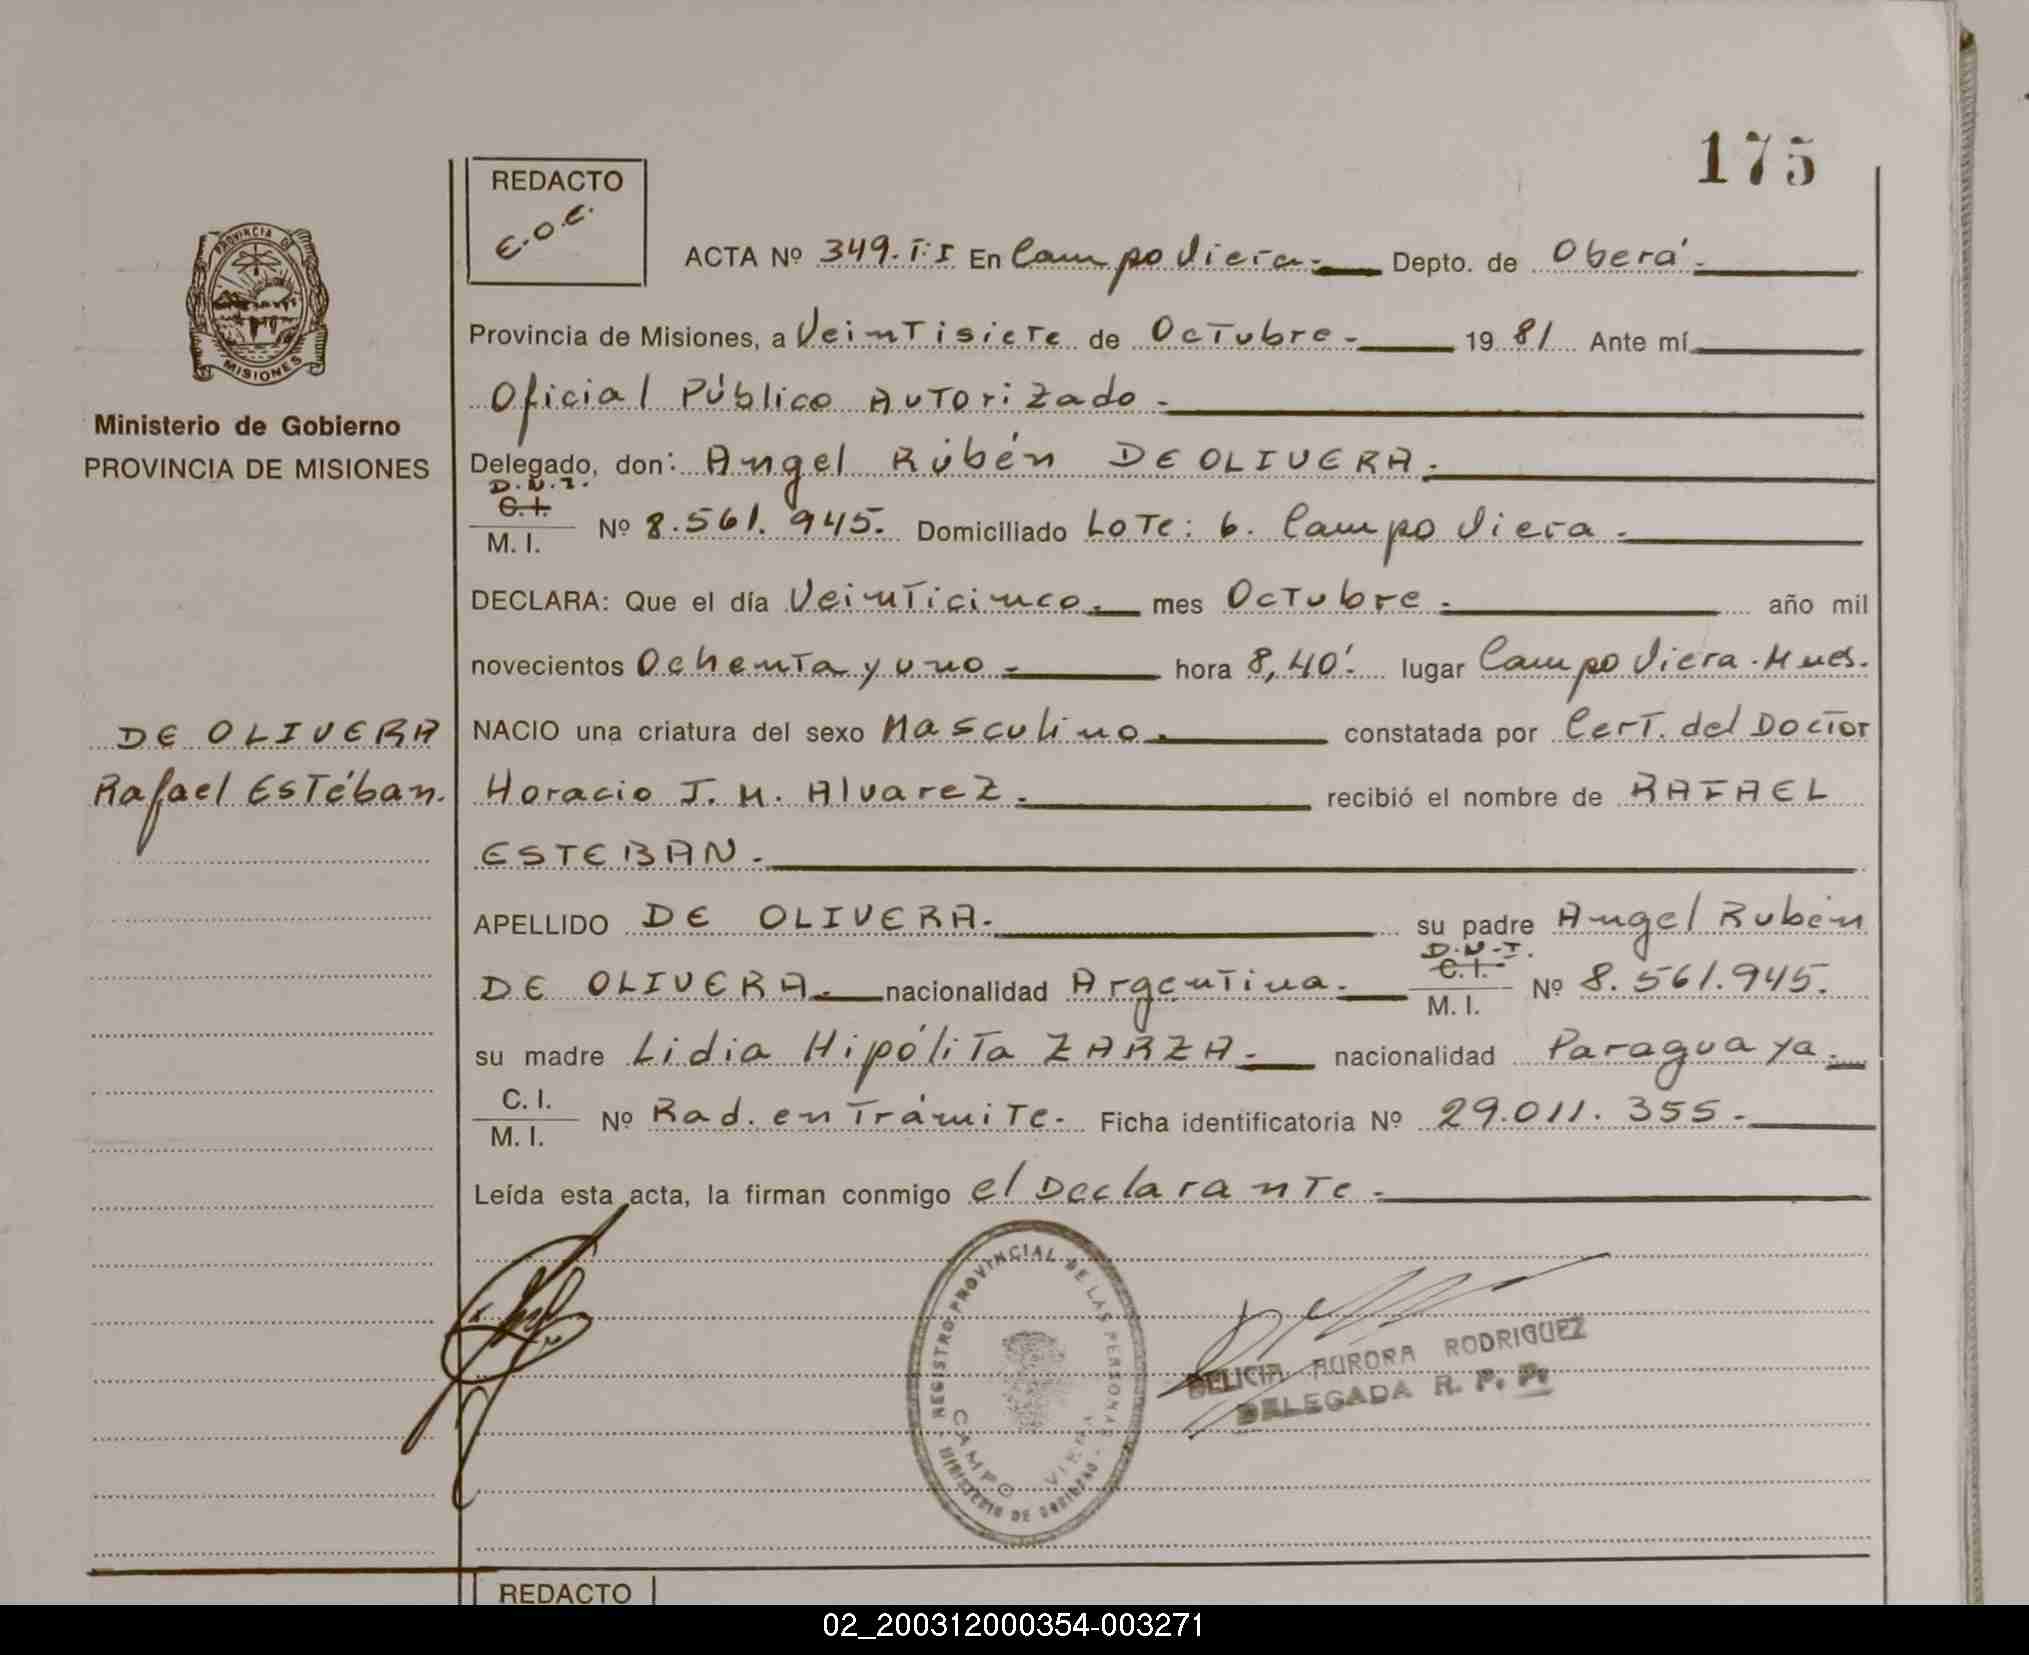 175
REDACTO
E.O.E.
PROVINCIA DE
MISIONES
Ministerio de Gobierno
PROVINCIA DE MISIONES
DE OLIVERA
Rafael Estéban.
ACTA Nº 349. T:I En Campo Viera.- Depto. de Oberá.
Provincia de Misiones, a Veintisiete de Octubre - 19 81 Ante mí
Oficial Público Autorizado -
Delegado, don: Angel Rúbén DE OLIVERA.
D.N.I.
C.I.
M. I. Nº 8.561.945. Domiciliado Lote: 6. Campo Viera -
DECLARA: Que el día Veinticinco. mes Octubre - año mil
novecientos Ochenta y uno - hora 8,40'. lugar Campo Viera.
NACIO una criatura del sexo Masculino. constatada por Cert. del Doctor
Horacio J. M. Alvarez. recibió el nombre de RAFAEL
ESTEBAN.
APELLIDO DE OLIVERA. su padre Angel Rubén
D.N.I.
C.I.
DE OLIVERA. nacionalidad Argentina. M. I. Nº 8.561.945.
su madre Lidia Hipólita ZARZA. nacionalidad Paraguaya.
C. I.
M. I. Nº Rad. en Trámite. Ficha identificatoria Nº 29.011.355.
Leída esta acta, la firman conmigo el Declarante.
REGISTRO PROVINCIAL DE LAS PERSONAS
CAMPO VIERA
MINISTERIO DE GOBIERNO
DELICIA AURORA RODRIGUEZ
DELEGADA R. P. P.
REDACTO
02_200312000354-003271